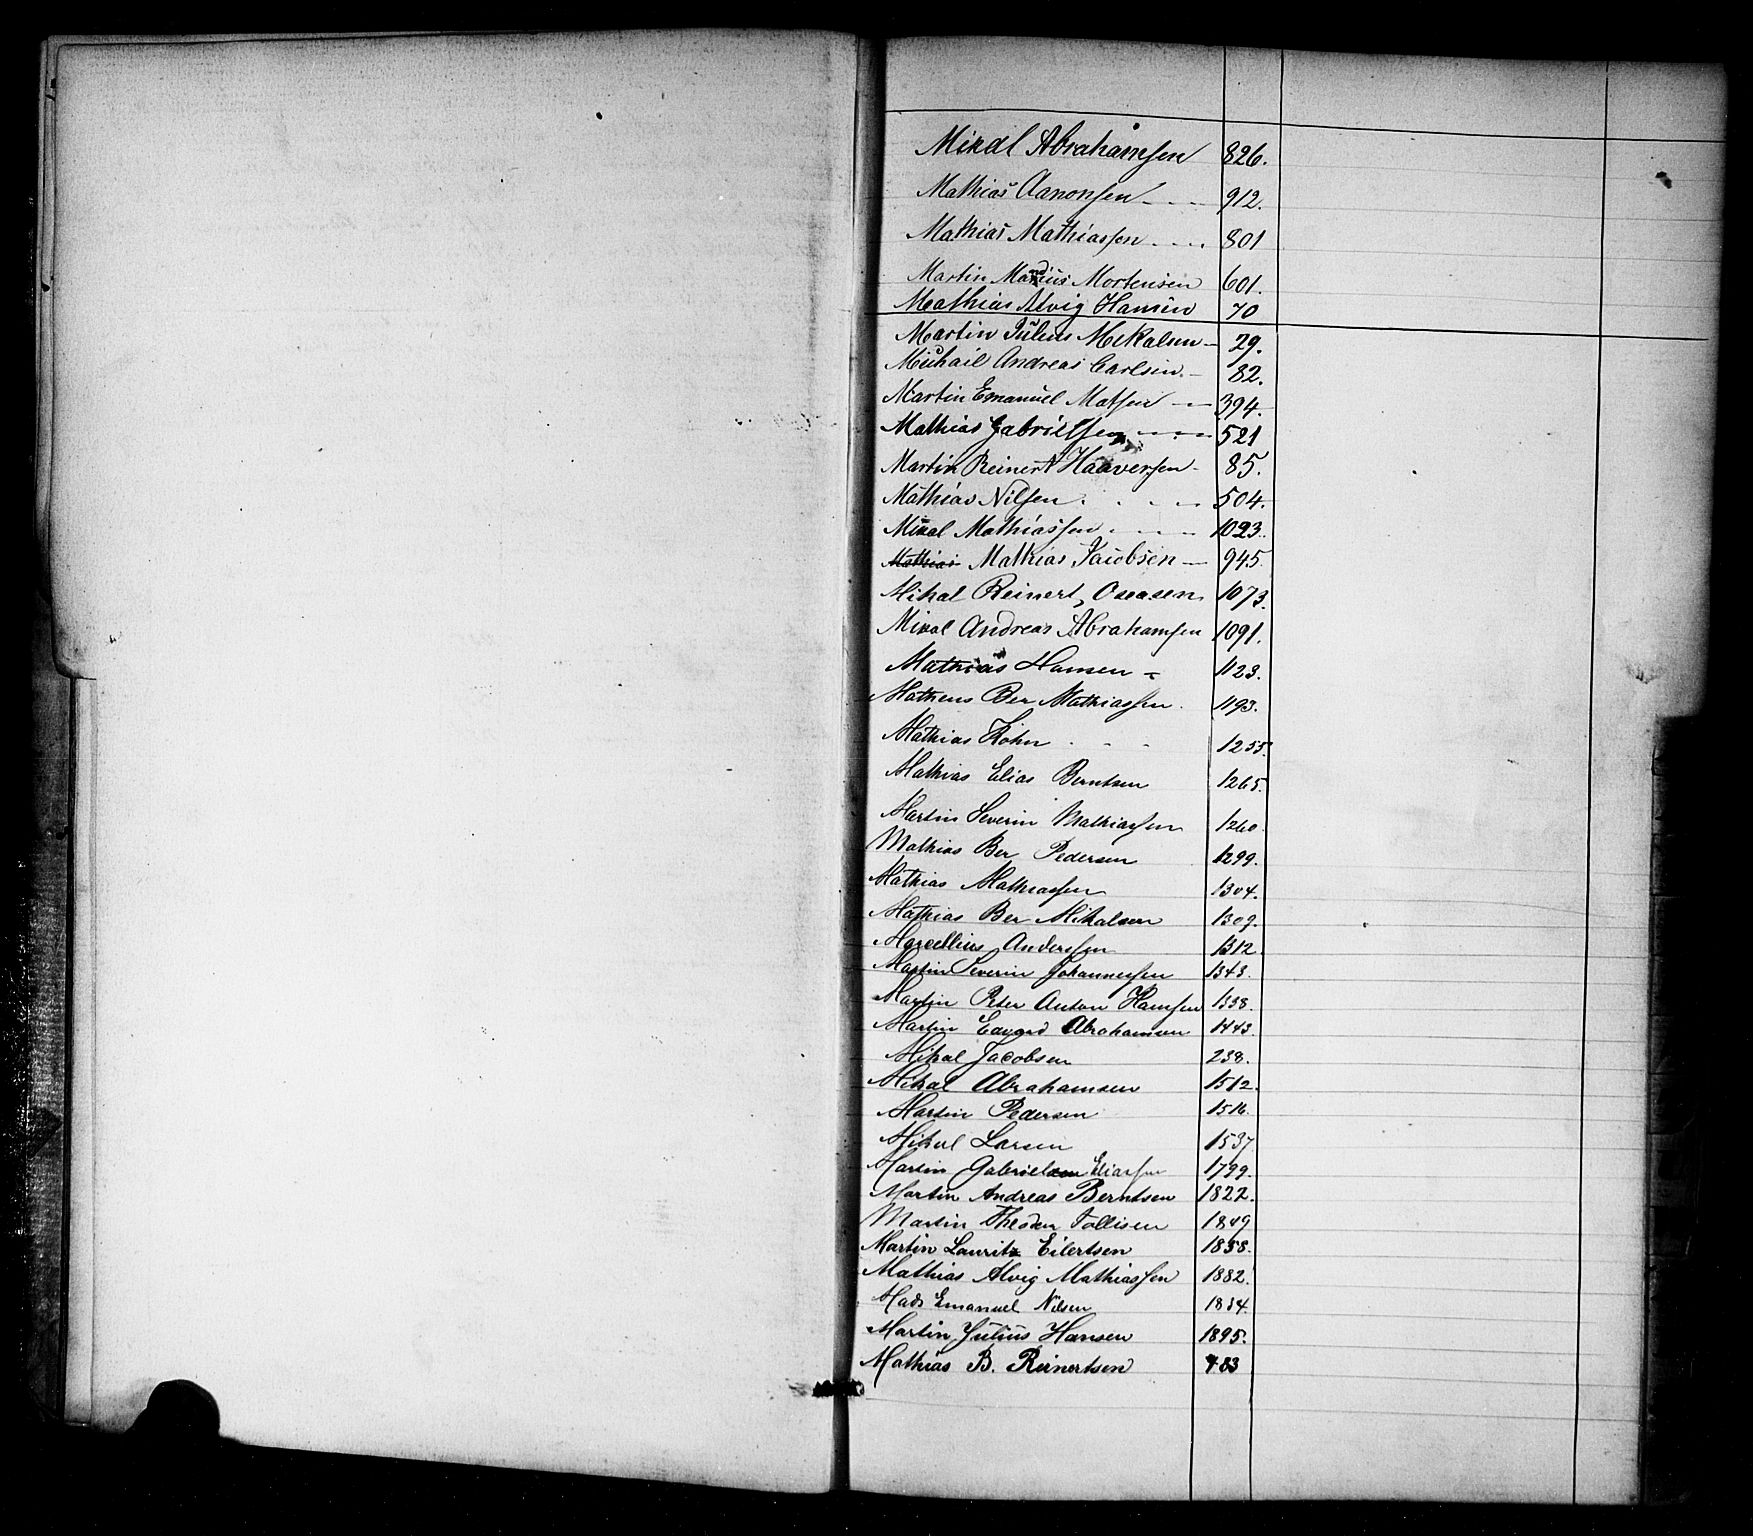 Mikal Abrahamsen 826.
Mathias Aanonsen 912.
Mathias Mathiassen 801
Martin Mortensen 601.
Mathias Alvig Hansen 70
Martin Julius Mekalsen 29.
Michail Andreas Carlsen 82.
Martin Emanuel Matsen 394.
Mathias Gabrielsen 521
Martin Reinert Haaversen 85.
Mathias Nilsen 504.
Mikal Mathiassen 1023.
Mathias Mathias Jacobsen 945.
Mikal Reinert Oseasen 1073.
Mikal Andreas Abrahamsen 1091.
Mathias Hansen 1123.
Matheus Ber Mathiassen 1193.
Mathias 1255.
Mathias Elias Berntsen 1265.
Martin Severin Mathiassen 1260.
Mathias Ber Pedersen 1299.
Mathias Mathiassen 1304.
Mathias Ber Mikalsen 1309.
Marcellius Anderssen 1312.
Martin Severin Johannessen 1343.
Martin Peter Anton Hanssen 1338.
Martin Edvard Abrahamsen 1443.
Mikal Jacobsen 238.
Mikal Abrahamsen 1512.
Martin Pedersen 1516.
Mikal Larsen 1537
Martin Gabrielsen Eliassen 1799.
Martin Andreas Berntsen 1822.
Martin Theodor Tollisen 1849
Martin Lauritz Eilertsen 1858.
Mathias Alvig Mathiassen 1882.
Mads Emanuel Nilsen 1834.
Martin Julius Hansen 1895.
Mathias B. Reinertsen 483